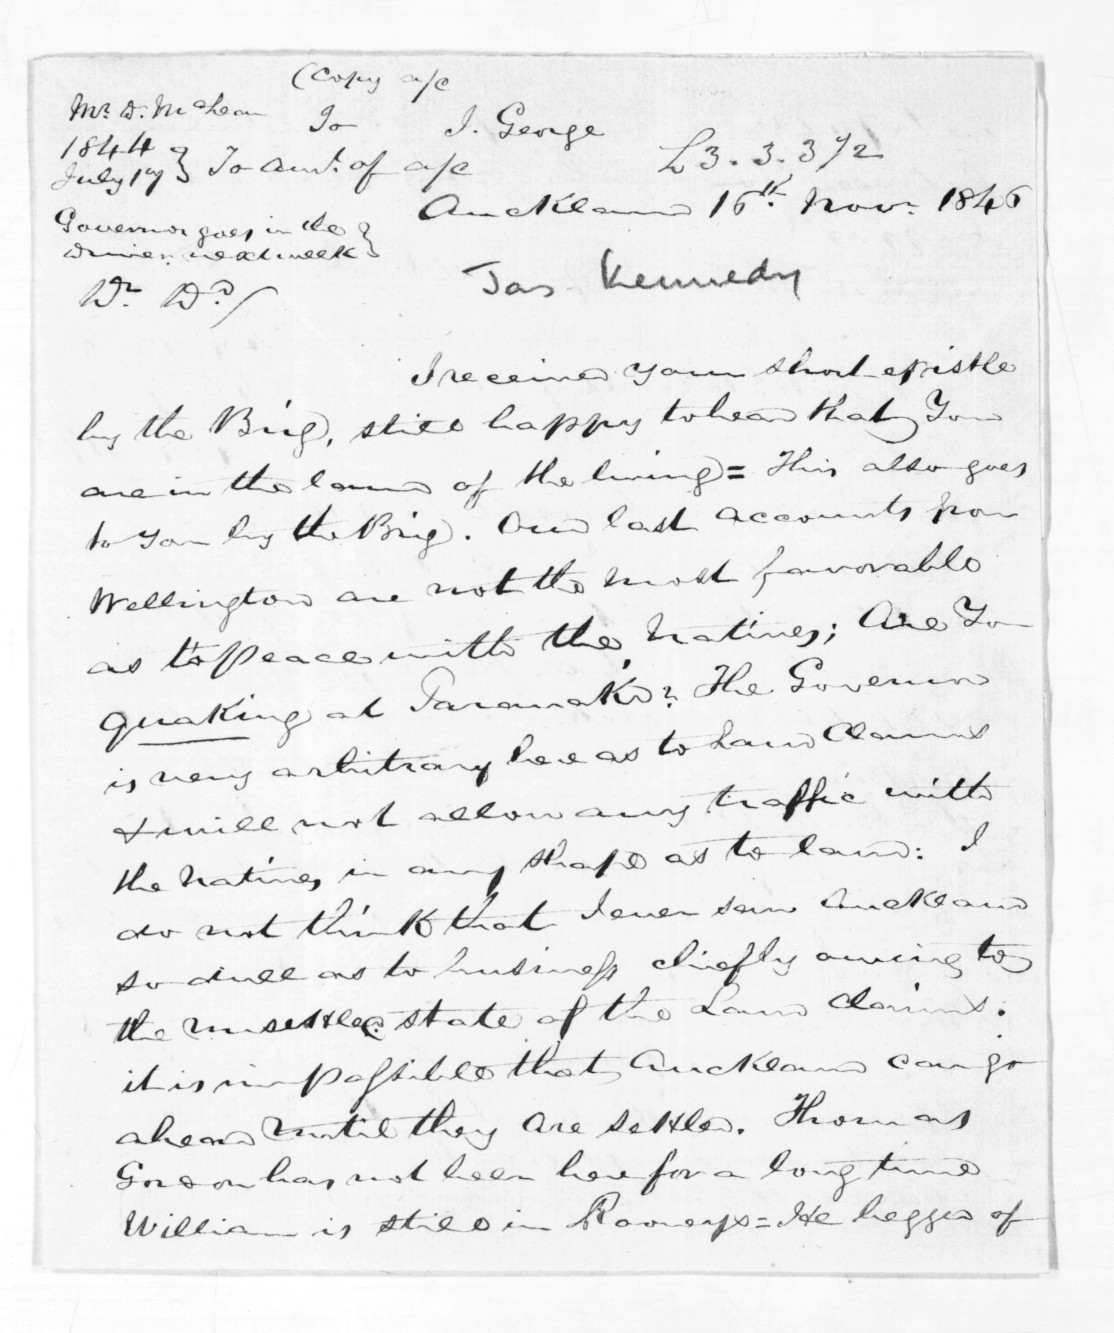 (Copy a/c
Mr. D. McLean To J. George
1844
July 19 } To Amt. of a/c £3. 3. 3 1/2
Auckland 16th. Novr. 1846
Governor goes in the }
Driver next week }
Jas Kennedy
Dr Dd/
I received your short epistle
by the Brig, still happy to hear that You
are in the land of the living = This also goes
to You by the Brig. Our last accounts from
Wellington are not the most favorable
as to peace with the Natives; Are You
quaking at Taranaki? The Governor
is very arbitrary here as to Land Claims
& will not allow any traffic with
the Natives in any shape as to land: I
do not think that I ever saw Auckland
so dull as to business chiefly owing to
the unsettled state of the Land Claims.
it is impossible that Auckland can go
ahead until they are settled. Thomas
Gordon has not been here for a long time
William is still in = He begged of